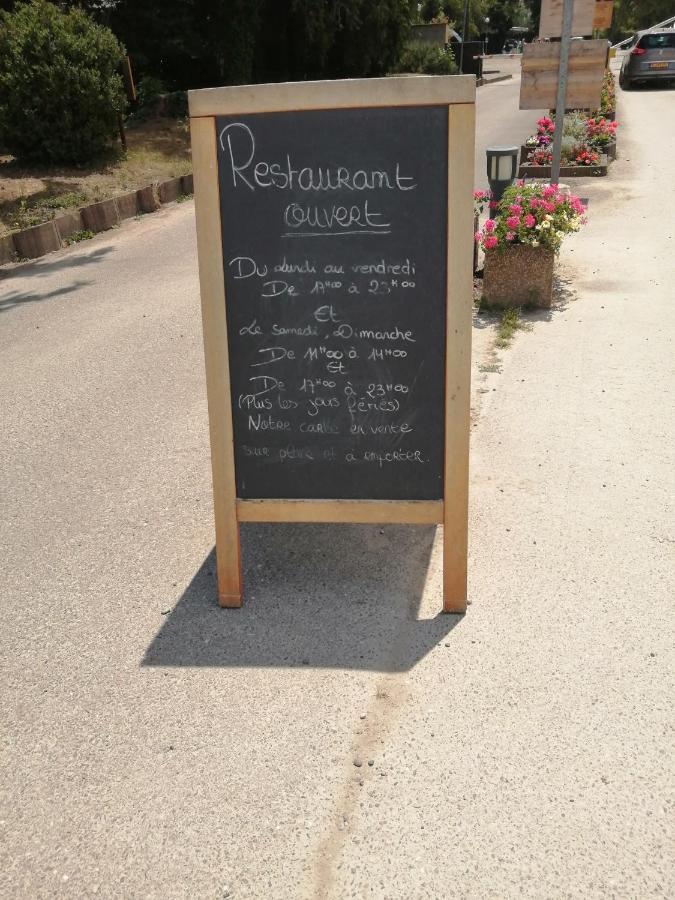 Restaurant
ouvert
Du Lundi au vendredi
De 17H00 à 23H00
Et
Le samedi, Dimanche
De 11H00 à 14H00
Et
De 17H00 à 23H00
(Plus les jours fériés)
Notre carte en vente
sur place et à emporter.